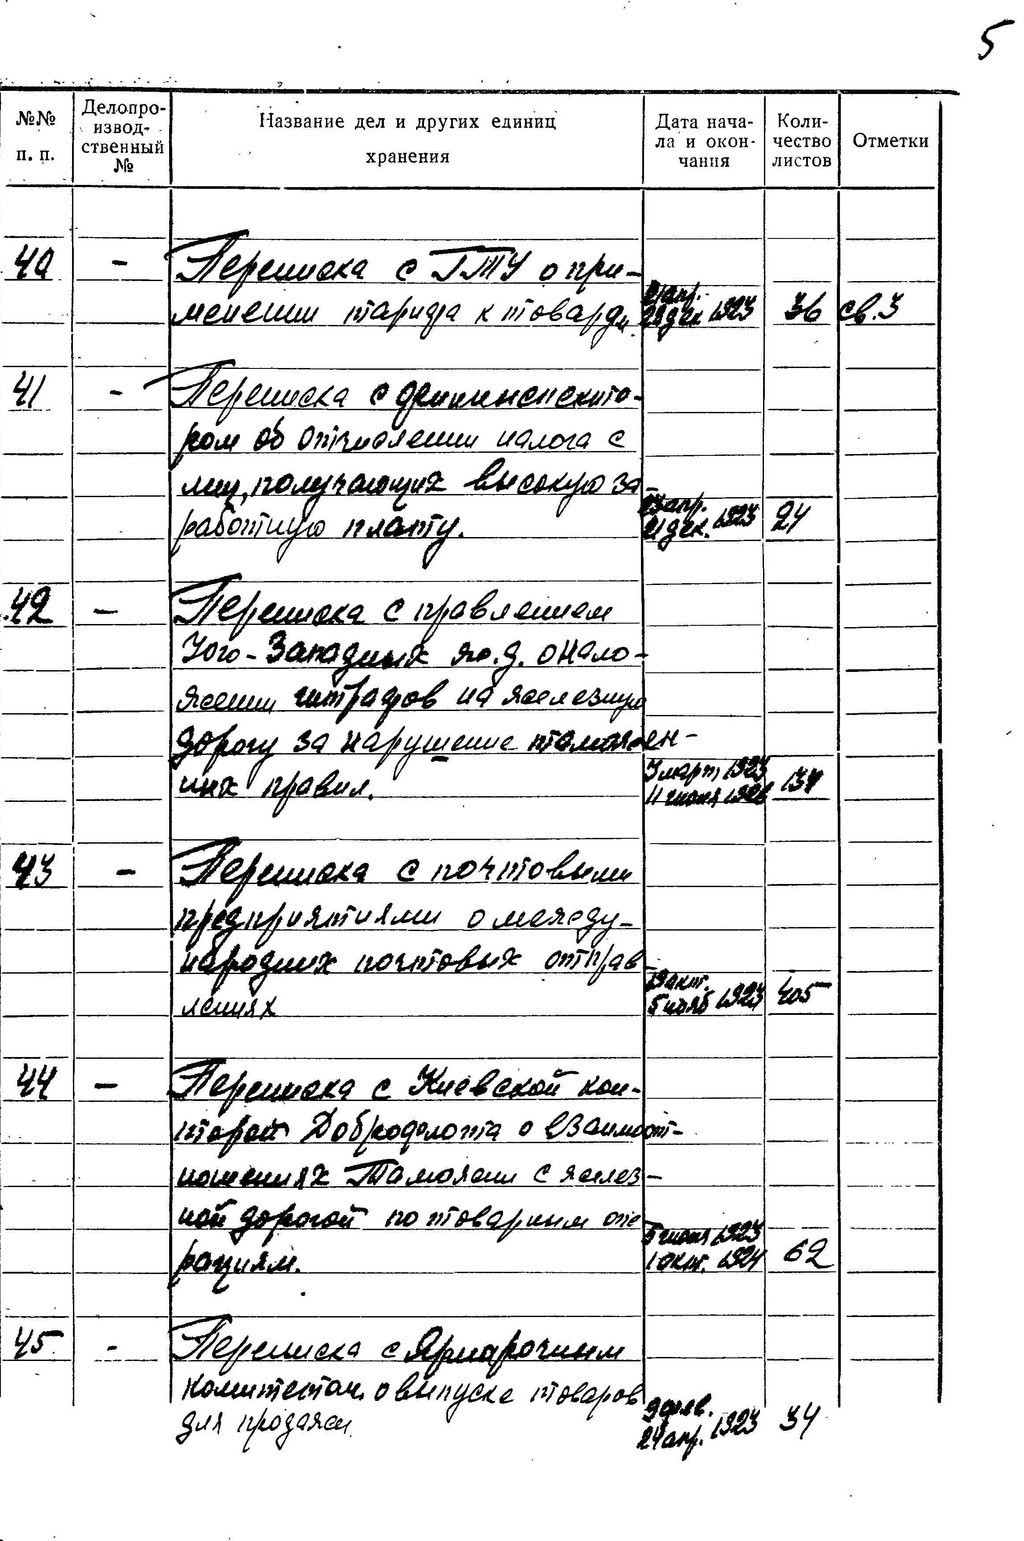 5
№№ п. п.
Делопро-
извод-
ственный
№
Название дел и других единиц
хранения
Дата нача-
ла и окон-
чания
Коли-
чество
листов
Отметки
40 - Переписка с ГТУ о при-
менении тарифа к товарам
21 апр.
28 дек. 1923
36 св. 3
41 - Переписка с фининспекто-
ром об отчислении налога с
лиц, получающих высокую за-
работную плату.
23 апр.
21 дек. 1923
24
42 - Переписка с правлением
Юго-Западных ж.д. о нало-
жении штрафов на железную
дорогу за нарушение таможен-
ных правил.
3 март 1923
11 июня
137
43 - Переписка с почтовыми
предприятиями о между-
народних почтовых отправ-
лениях
19 окт.
5 нояб 1923
405
44 - Переписка с Киевской кон-
торой Доброфлота о взаимоот-
ношениях Таможни с желез-
ной дорогой по товарным опе
рациям.
5 июня 1923
1 окт. 1924
62
45 - Переписка с Ярмарочным
комитетом о выпуске товаров
для продажи
9 фев.
24 апр. 1923
34